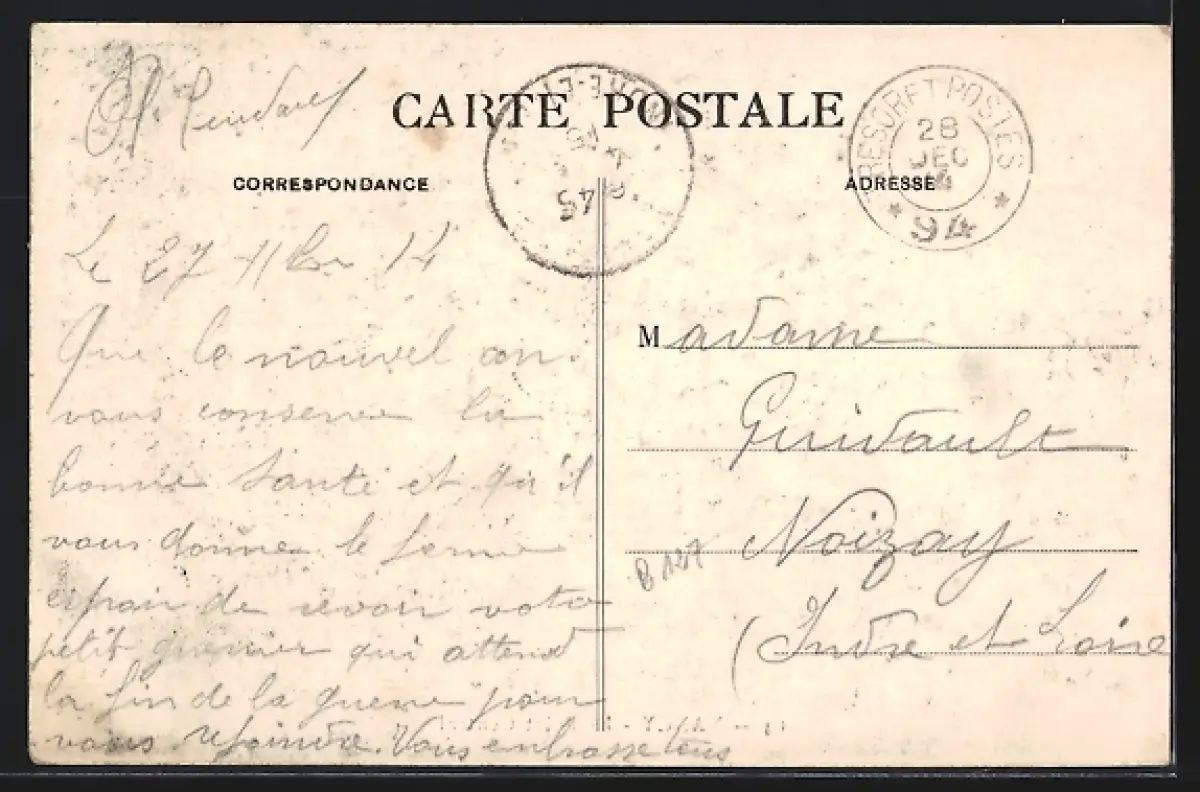 CARTE POSTALE
CORRESPONDANCE
ADRESSE
TRESOR ET POSTES
28
DEC
14
* 94 *
45
Le 27 Xbre 14
Que le nouvel an
vous conserve la
bonne santé et qu'il
vous donne le ferme
espoir de revoir votre
petit guerrier qui attend
la fin de la guerre pour
vous rejoindre. Vous embrasse tous
Madame
Guivault
Noizay
(Indre et Loire
B 127